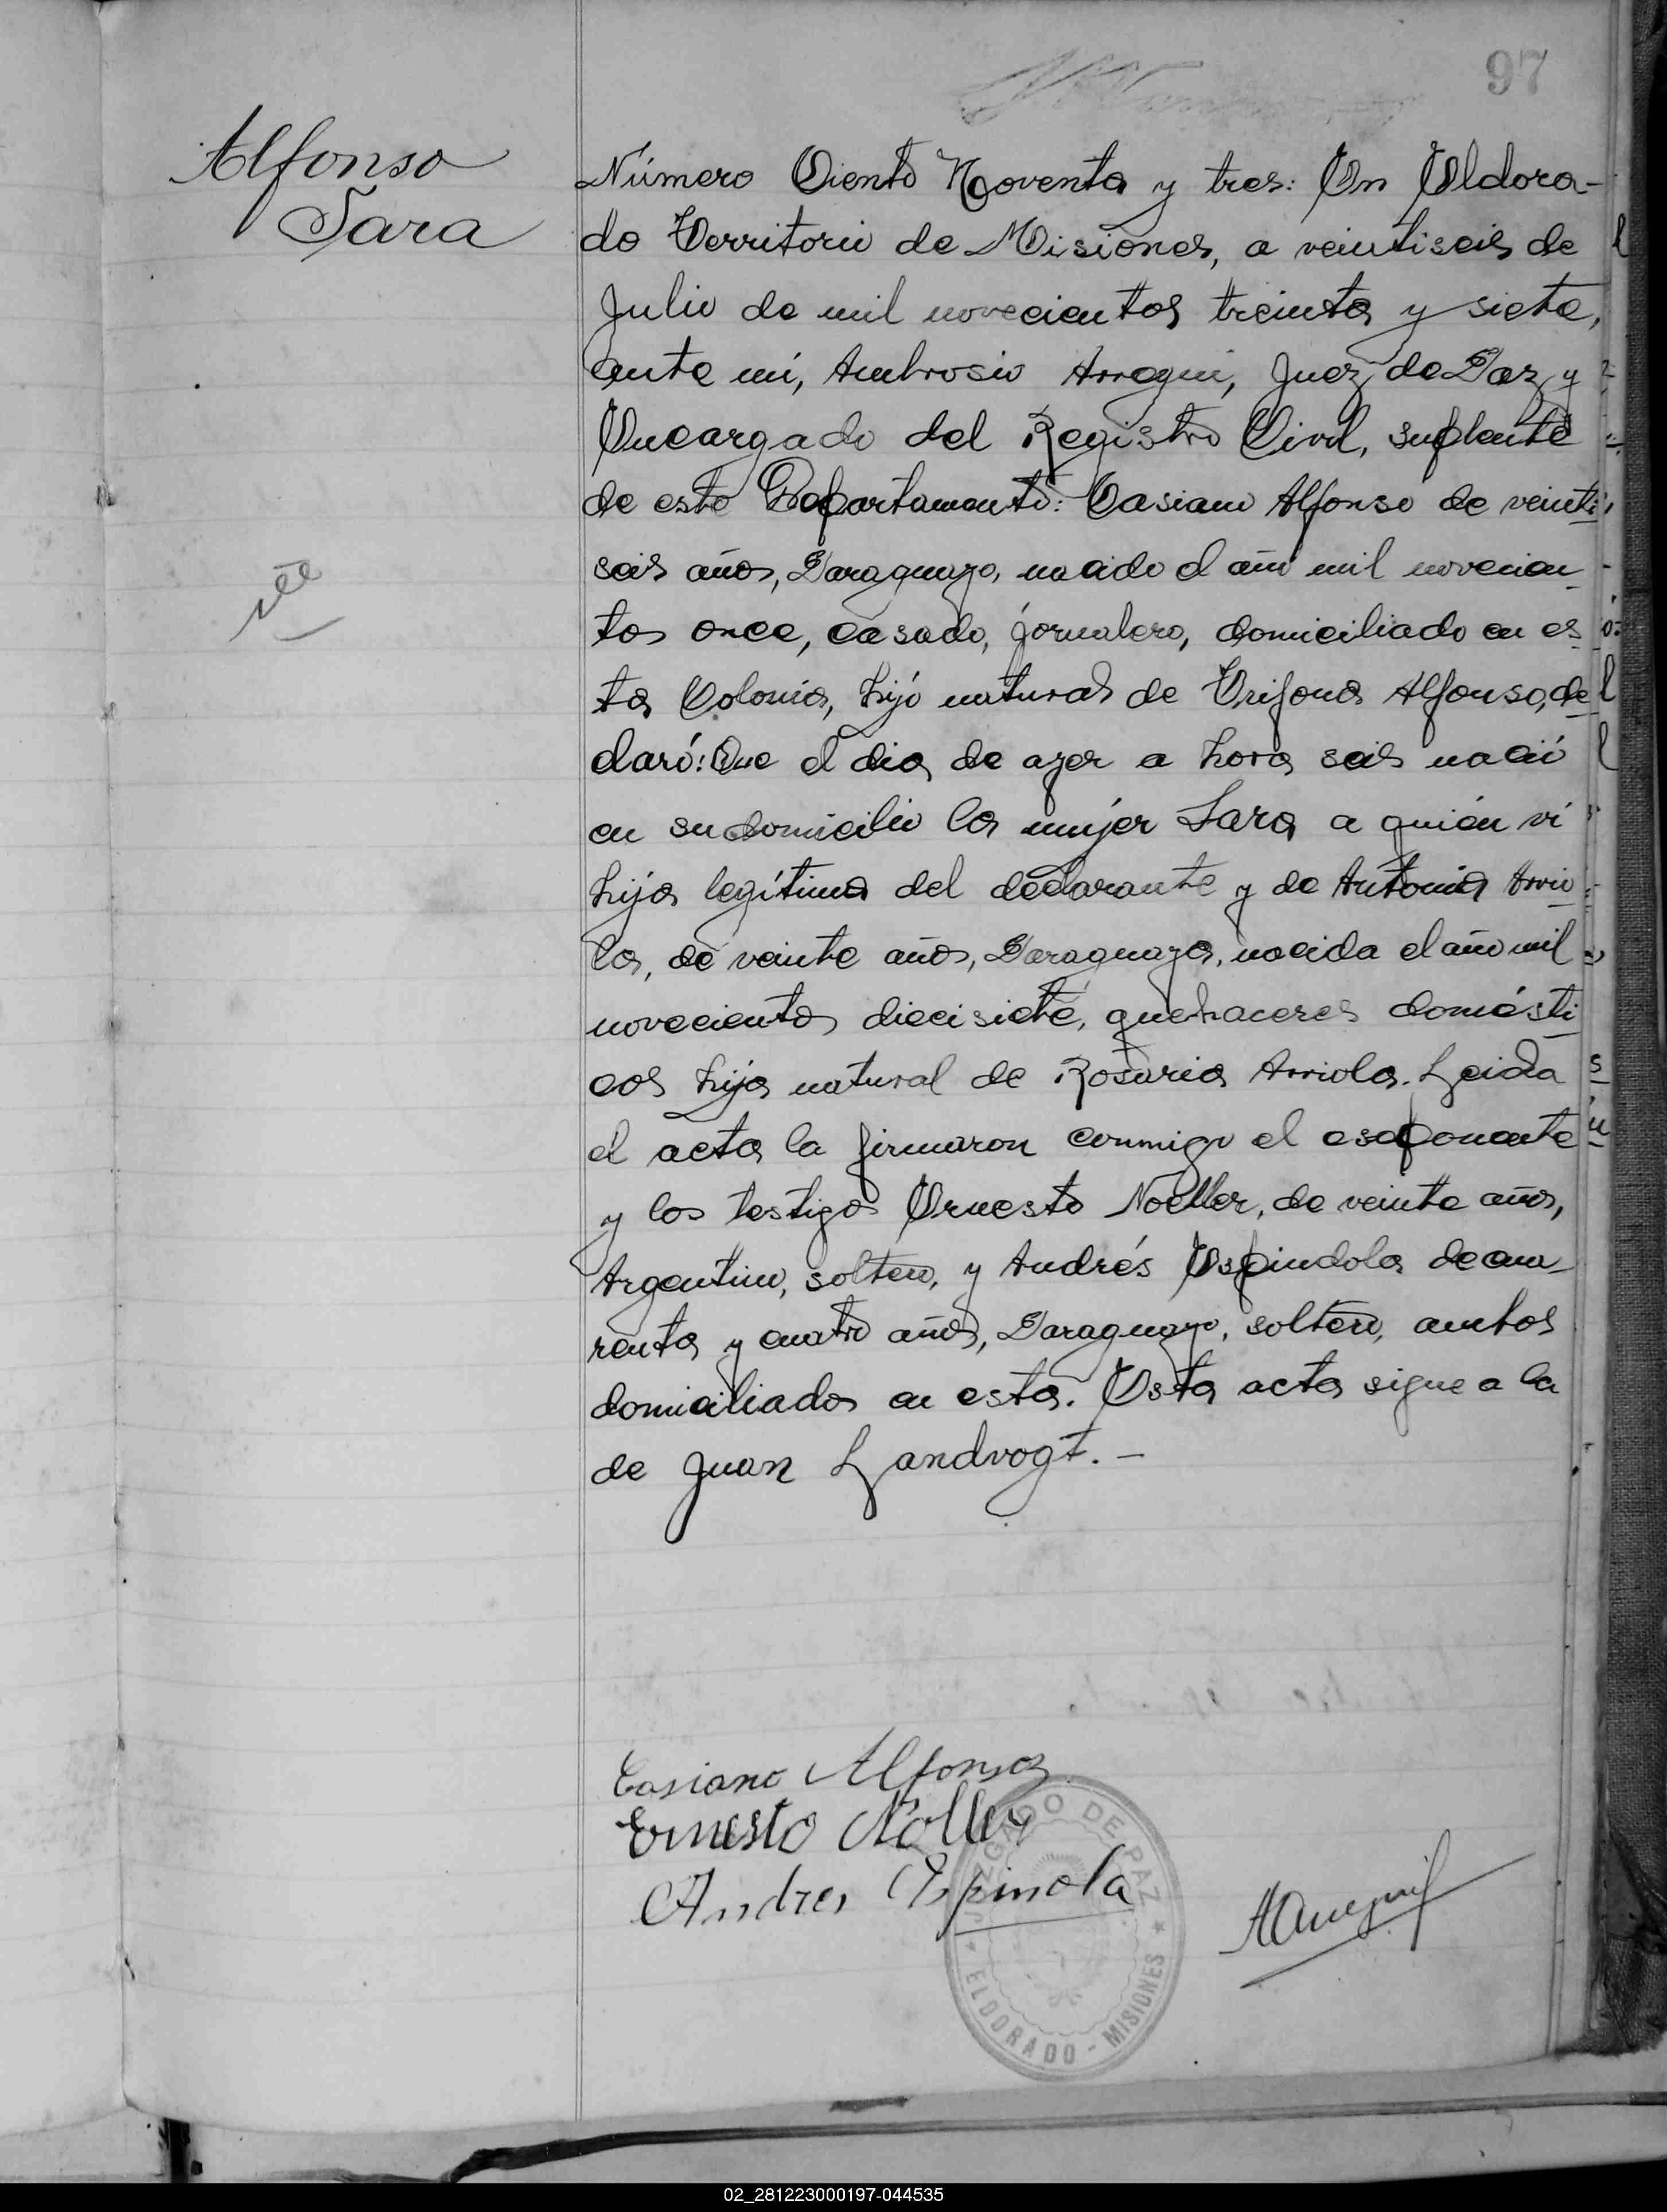 97
Alfonso
Sara
Número Ciento Noventa y tres: En Eldora-
do Territorio de Misiones, a veintiseis de
Julio de mil novecientos treinta y siete,
ante mí, Ambrosio Arregui, Juez de Paz y
Encargado del Registro Civil, suplente
de este Departamento: Casiano Alfonso de veinti
seis años, Paraguayo, nacido el año mil novecien
tos once, casado, jornalero, domiciliado en es
ta Colonia, hijo natural de Trifona Alfonso, de
claró: Que el dia de ayer a hora seis nació
en su domicilio la mujer Sara a quién ví
hija legítima del declarante y de Antonia Arrio
la, de veinte años, Paraguaya, nacida el año mil
novecientos diecisiete, quehaceres domésti
cos hija natural de Rosaria Arriola. Leida
el acta la firmaron conmigo el exponente
y los testigos Ernesto Noeller, de veinte años,
Argentino, soltero, y Andrés Espindola de cua-
renta y cuatro años, Paraguayo, soltero, ambos
domiciliados en esta. Esta acta sigue a la
de Juan Landvogt. -
Casiano Alfonso
Ernesto Nöller
Andres Espinola
JUZGADO DE PAZ
ELDORADO - MISIONES
02_281223000197-044535